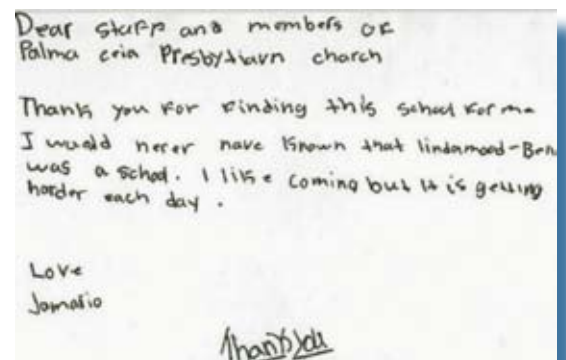 Dear staff and members of
Palma ceia Presbytlavn charch
Thank you for finding this school for me
I would never have known that lindamood-Ben
was a school. I like coming but it is getting
harder each day.
Love
Jamario
Thank you